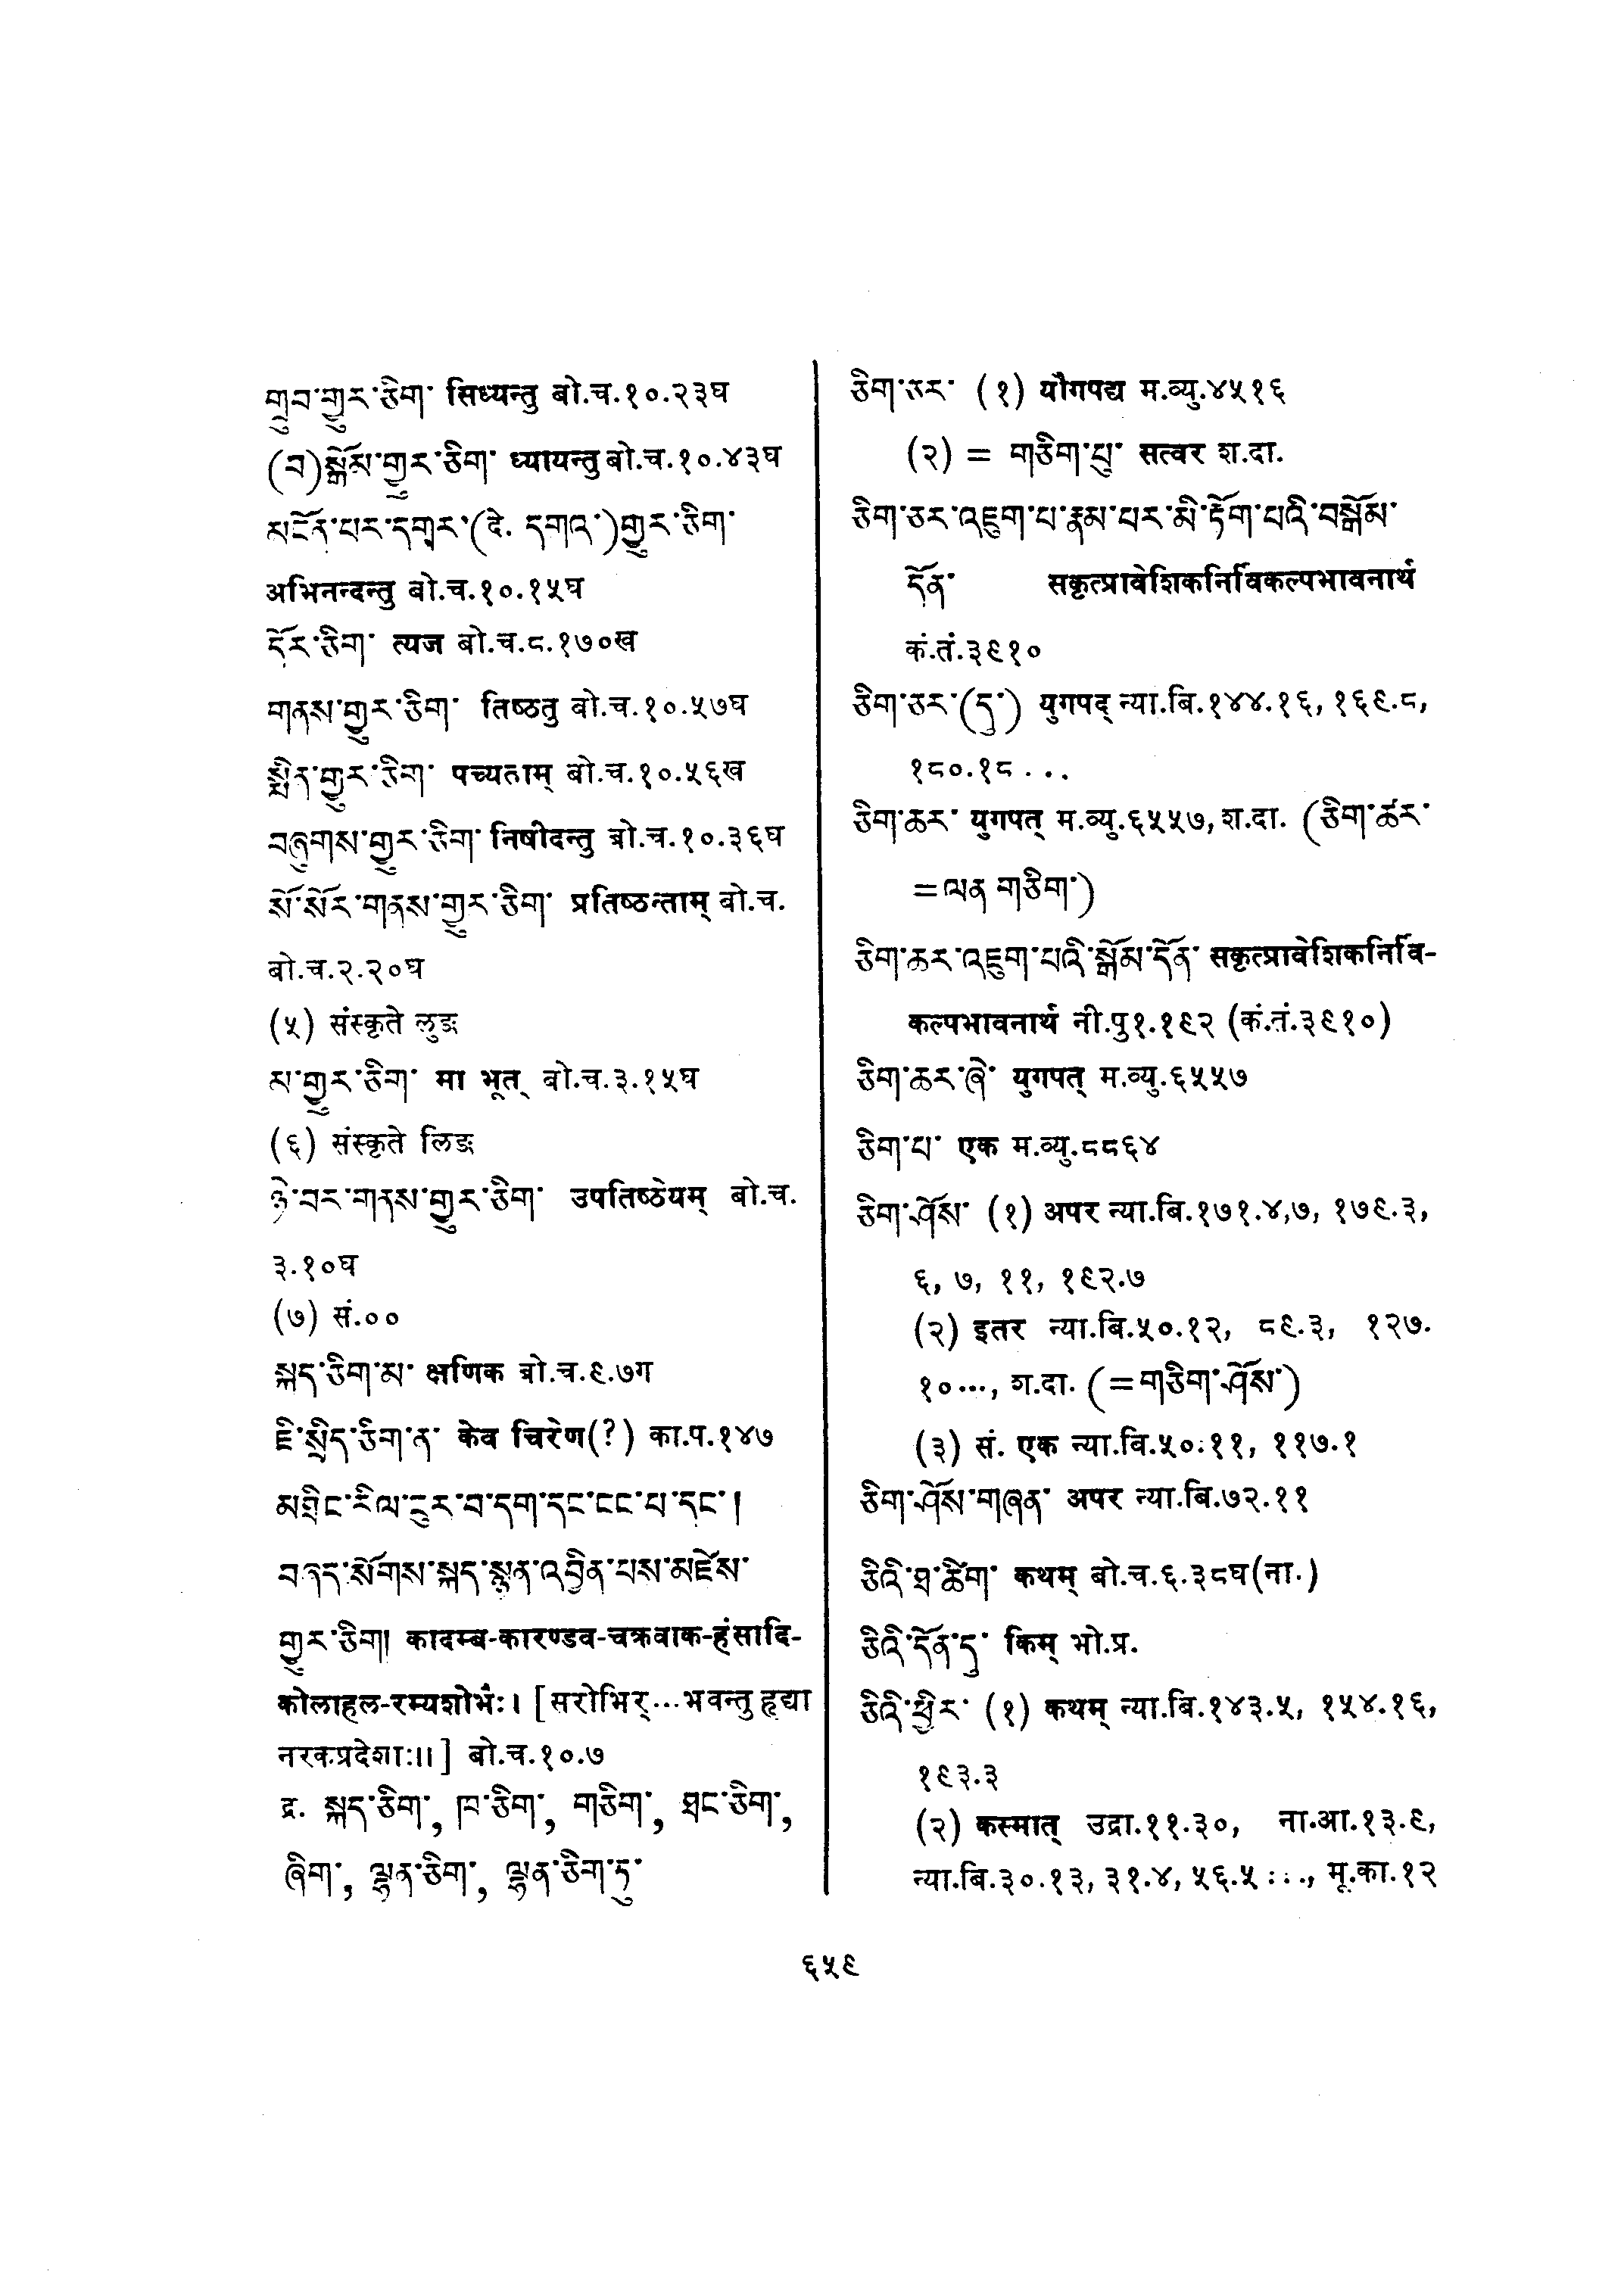 གྲུབ་གྱུར་ཅིག་ सिध्यन्तु बो.च.१०.२३घ
(བ)སྒོམ་གྱུར་ཅིག་ ध्यायन्तु बो.च.१०.४३घ
མངོན་པར་དགར་(दे. དགའ་)གྱུར་ཅིག་
अभिनन्दन्तु बो.च.१०.१५घ
དོར་ཅིག་ त्यज बो.च.८.१७०ख
གནས་གྱུར་ཅིག་ तिष्ठतु बो.च.१०.५७घ
སྨིན་གྱུར་ཅིག་ पच्यताम् बो.च.१०.५६ख
བཞུགས་གྱུར་ཅིག་ निषीदन्तु बो.च.१०.३६घ
སོ་སོར་གནས་གྱུར་ཅིག་ प्रतिष्ठन्ताम् बो.च.
बो.च.२.२०घ
(५) संस्कृते लुङ
མ་གྱུར་ཅིག་ मा भूत् बो.च.३.१५घ
(६) संस्कृते लिङ
ཉེ་བར་གནས་གྱུར་ཅིག་ उपतिष्ठेयम् बो.च.
३.१०घ
(७) सं.००
སྐད་ཅིག་མ་ क्षणिक बो.च.९.७ग
ཇི་སྲིད་ཅིག་ན་ केव चिरेण(?) का.प.१४७
མགྲིང་རིལ་ངུར་བ་དག་དང་ངང་པ་དང་།
བཞད་སོགས་སྐད་སྙན་འབྱིན་པས་མཛེས་
གྱུར་ཅིག། कादम्ब-कारण्डव-चक्रवाक-हंसादि-
कोलाहल-रम्यशोभैः। [सरोभिर्...भवन्तु हृद्या
नरकप्रदेशाः॥] बो.च.१०.७
द्र. སྐད་ཅིག་, ཁ་ཅིག་, གཅིག་, ཐང་ཅིག་,
ཞིག་, ལྷན་ཅིག་, ལྷན་ཅིག་ཏུ་
ཅིག་ཅར་ (१) यौगपद्य म.व्यु.४५१६
(२) = གཅིག་པུ་ सत्वर श.दा.
ཅིག་ཅར་འཇུག་པ་རྣམ་པར་མི་རྟོག་པའི་བསྒོམ་
དོན་ सकृत्प्रावेशिकनिर्विकल्पभावनार्थ
कं.तं.३९१०
ཅིག་ཅར་(དུ་) युगपद् न्या.बि.१४४.१६, १६९.८,
१८०.१८...
ཅིག་ཆར་ युगपत् म.व्यु.६५५७, श.दा. (ཅིག་ཚར་
=ལན གཅིག་)
ཅིག་ཆར་འཇུག་པའི་སྒོམ་དོན་ सकृत्प्रावेशिकनिर्वि-
कल्पभावनार्थ नी.पु१.१९२ (कं.तं.३९१०)
ཅིག་ཆར་ཞེ་ युगपत् म.व्यु.६५५७
ཅིག་པ་ एक म.व्यु.८८६४
ཅིག་ཤོས་ (१) अपर न्या.बि.१७१.४,७, १७९.३,
६, ७, ११, १९२.७
(२) इतर न्या.बि.५०.१२, ८९.३, १२७.
१०..., श.दा. (=གཅིག་ཤོས་)
(३) सं. एक न्या.बि.५०.११, ११७.१
ཅིག་ཤོས་གཞན་ अपर न्या.बि.७२.११
ཅིའི་ཐ་ཚིག་ कथम् बो.च.६.३८घ(ना.)
ཅིའི་དོན་དུ་ किम् भो.प्र.
ཅིའི་ཕྱིར་ (१) कथम् न्या.बि.१४३.५, १५४.१६,
१९३.३
(२) कस्मात् उद्रा.११.३०, ना.आ.१३.९,
न्या.बि.३०.१३, ३१.४, ५६.५..., मू.का.१२
६५९